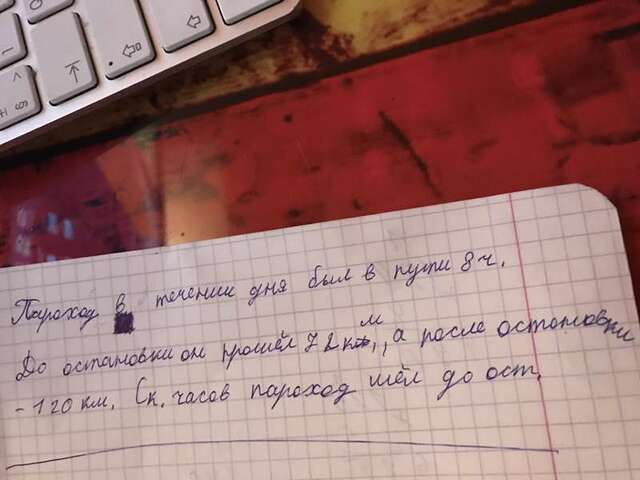 Пароход в течении дня был в пути 8 ч.
До остановки он прошёл 72 км, а после остановки
- 120 км. Ск. часов пароход шёл до ост.